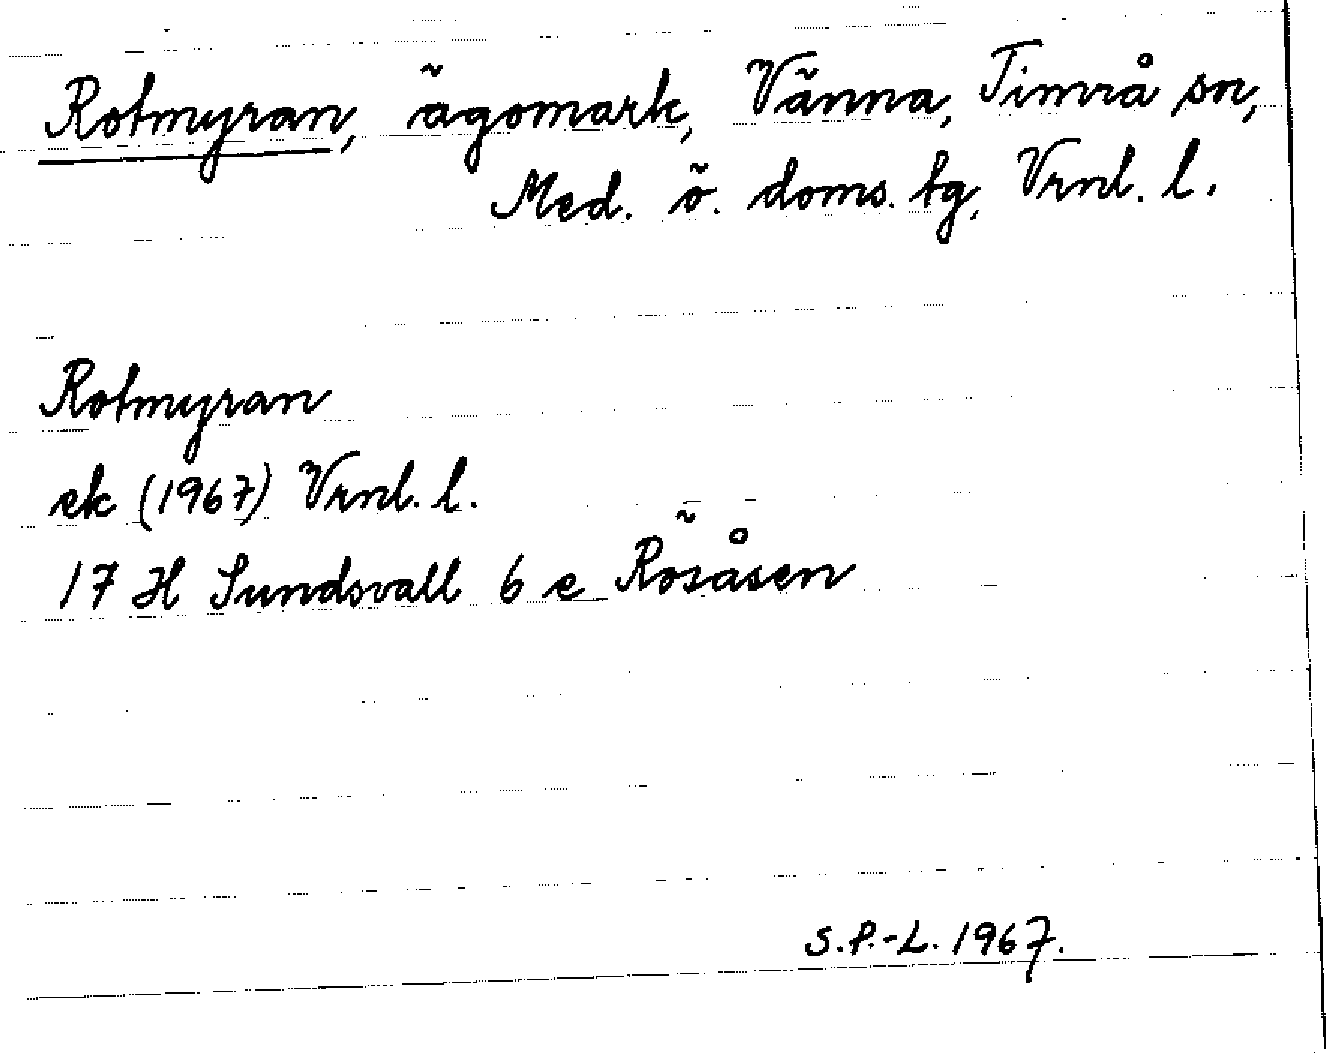 Rotmyran, ägomark, Vänna, Timrå sn,
Med. ö. doms. tg, Vrnl. l.
Rotmyran
ek (1967) Vrnl. l.
17 H Sundsvall 6 e Rösåsen
S.P.-L. 1967.